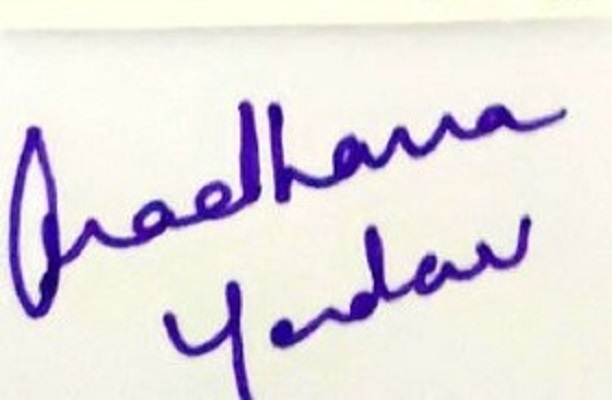 Aradhana
Yadav